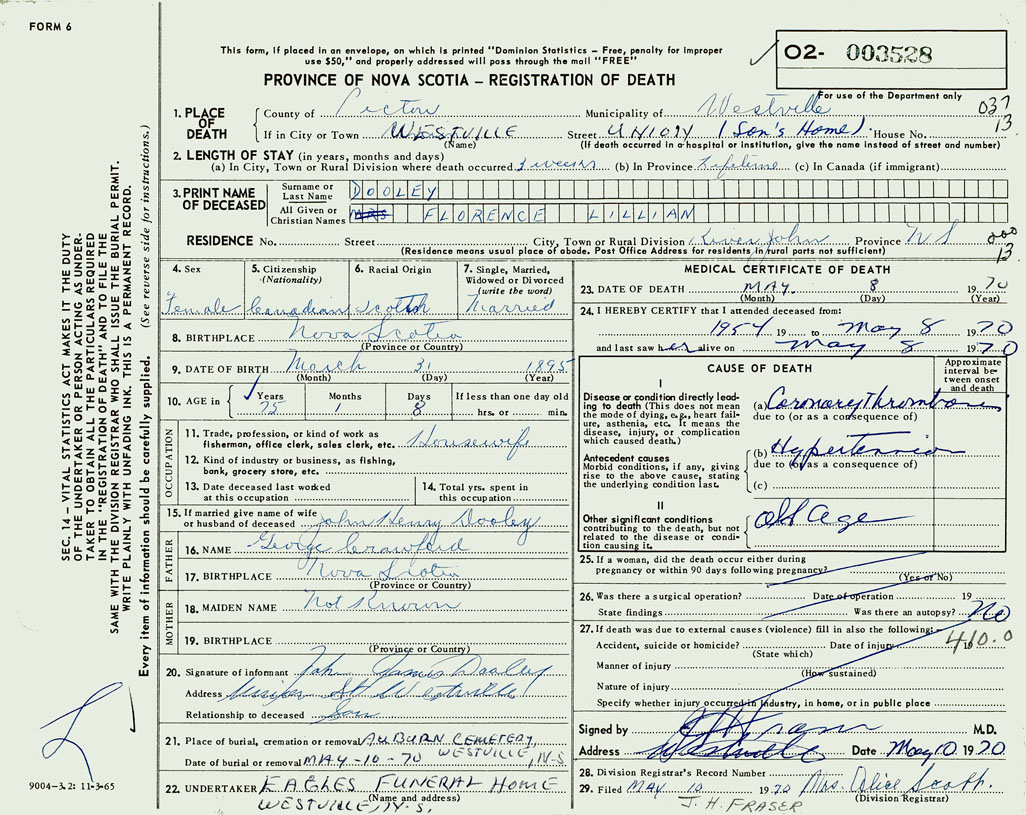 FORM 6
This form, if placed in an envelope, on which is printed "Dominion Statistics – Free, penalty for improper
use $50," and properly addressed will pass through the mail "FREE"
PROVINCE OF NOVA SCOTIA – REGISTRATION OF DEATH
O2- 003528
For use of the Department only
037
13
1. PLACE OF DEATH
County of Pictou Municipality of Westville
If in City or Town WESTVILLE Street UNION (Son's Home) House No.
(Name) (If death occurred in a hospital or institution, give the name instead of street and number)
2. LENGTH OF STAY (in years, months and days)
(a) In City, Town or Rural Division where death occurred 3 weeks (b) In Province Lifetime (c) In Canada (if immigrant)
3. PRINT NAME OF DECEASED
Surname or Last Name DOOLEY
All Given or Christian Names MRS FLORENCE LILLIAN
RESIDENCE No. Street City, Town or Rural Division River John Province NS
000
13
(Residence means usual place of abode. Post Office Address for residents in rural parts not sufficient)
4. Sex Female
5. Citizenship (Nationality) Canadian
6. Racial Origin Scotish
7. Single, Married, Widowed or Divorced (write the word) Married
8. BIRTHPLACE Nova Scotia
(Province or Country)
9. DATE OF BIRTH March 31 1895
(Month) (Day) (Year)
10. AGE in Years 75 Months 1 Days 8 If less than one day old hrs. or min.
OCCUPATION
11. Trade, profession, or kind of work as fisherman, office clerk, sales clerk, etc. Housewife
12. Kind of industry or business, as fishing, bank, grocery store, etc.
13. Date deceased last worked at this occupation
14. Total yrs. spent in this occupation
15. If married give name of wife or husband of deceased John Henry Dooley
FATHER
16. NAME George Crawford
17. BIRTHPLACE Nova Scotia
(Province or Country)
MOTHER
18. MAIDEN NAME Not Known
19. BIRTHPLACE
(Province or Country)
20. Signature of informant John James Dooley
Address Union St Westville
Relationship to deceased Son
21. Place of burial, cremation or removal AUBURN CEMETERY,
WESTVILLE, N.S.
Date of burial or removal MAY-10-70
22. UNDERTAKER EAGLES FUNERAL HOME
(Name and address)
WESTVILLE, N.S.
MEDICAL CERTIFICATE OF DEATH
23. DATE OF DEATH MAY 8 1970
(Month) (Day) (Year)
24. I HEREBY CERTIFY that I attended deceased from:
1954 19 to May 8 1970
and last saw her alive on May 8 1970
CAUSE OF DEATH
Approximate interval between onset and death
I
Disease or condition directly leading to death (This does not mean the mode of dying, e.g., heart failure, asthenia, etc. It means the disease, injury, or complication which caused death.)
(a) Coronary thrombosis
due to (or as a consequence of)
Antecedent causes
Morbid conditions, if any, giving rise to the above cause, stating the underlying condition last.
(b) Hypertension
due to (or as a consequence of)
(c)
II
Other significant conditions
contributing to the death, but not related to the disease or condition causing it.
Old Age
25. If a woman, did the death occur either during
pregnancy or within 90 days following pregnancy?
(Yes or No)
26. Was there a surgical operation? Date of operation 19
State findings Was there an autopsy? No
27. If death was due to external causes (violence) fill in also the following:
410.0
Accident, suicide or homicide? Date of injury
(State which)
Manner of injury
(How sustained)
Nature of injury
Specify whether injury occurred in industry, in home, or in public place
Signed by M.D.
Address Westville Date May 10 1970
28. Division Registrar's Record Number
29. Filed MAY 10 1970 Mrs. Alice Scott.
(Division Registrar)
J. H. FRASER
SEC. 14 – VITAL STATISTICS ACT MAKES IT THE DUTY
OF THE UNDERTAKER OR PERSON ACTING AS UNDER-
TAKER TO OBTAIN ALL THE PARTICULARS REQUIRED
IN THE "REGISTRATION OF DEATH" AND TO FILE THE
SAME WITH THE DIVISION REGISTRAR WHO SHALL ISSUE THE BURIAL PERMIT.
WRITE PLAINLY WITH UNFADING INK. THIS IS A PERMANENT RECORD.
Every item of information should be carefully supplied. (See reverse side for instructions.)
9004-3.2: 11-3-65